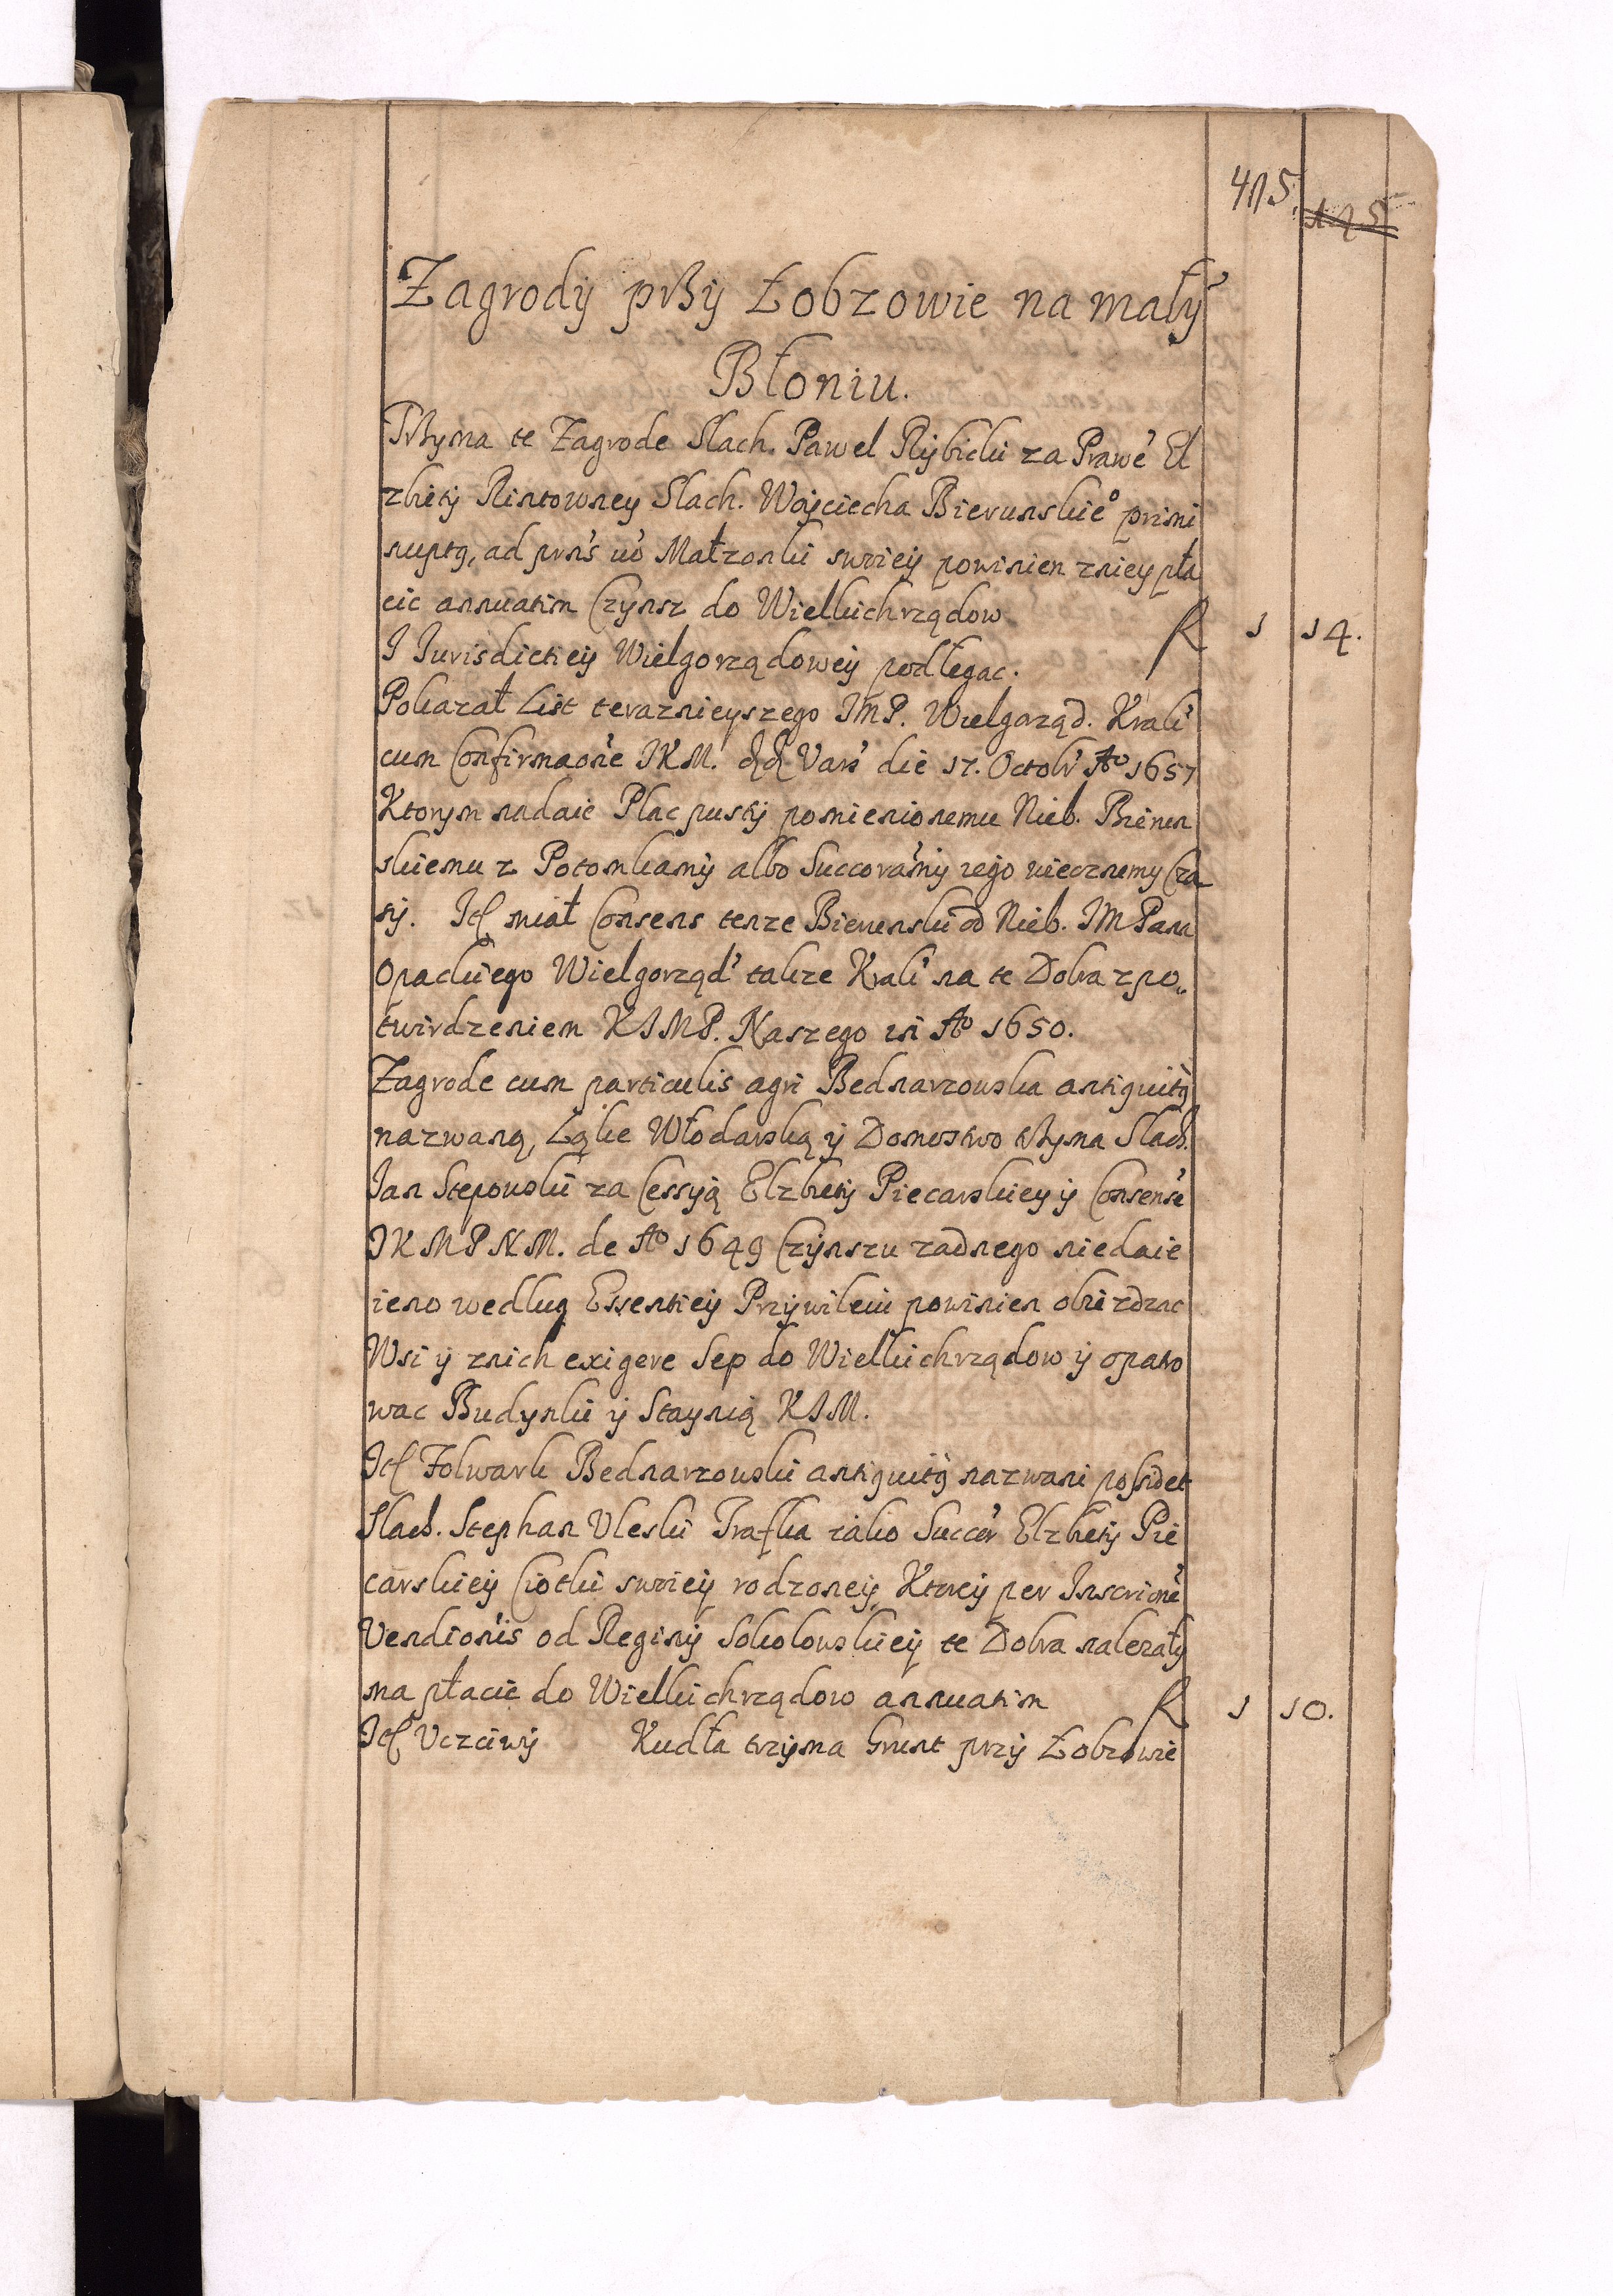 415. 125
Zagrody przy Łobzowie na mały
Błoniu.
Trzyma te Zagrode Slach. Pawel Rybicki za Prawe El
zbiety Rintowney Slach. Woyciecha Bierunskieo primi
nuptę, ad prns uo Małzonki swoiey powinien zniey pła
cic annuatim Czynsz do Wielkichrządow f 1 14.
I Iurisdictiey Wielgorządowey podlegac.
Pokazał List teraznieyszego JMP. Wielgorząd. Krak
cum Confirmaone JKM. Vars die 17. Octobr Ao 1657
Ktorym nadaie Plac pusty pomienionemu Nieb. Bierun
skiemu z Potomkamy albo Succoramy iego wiecznemy Cza
sy. Itt miał Consens tenze Bierunski od Nieb. JMPana
Opackiego Wielgorząd takze Krak na te Dobra zpo„
twirdzeniem KJMP. Naszego in Ao 1650.
Zagrode cum particulis agri Bednarzowska antiquitg
nazwaną, Łąke Włodarską y Domostwo trzyma Slach.
Jan Stepowski za Cessyją Elzbiety Piecarskiey y Consense
JKMPNM. de Ao 1649 Czynszu zadnego niedaie
ieno wedlug Essentiey Przywileiu powinien obiezdzac
Wsi y znich exigere Sep do Wielkichrządow y opatro
wac Budynki y Staynią KJM.
Itt Folwark Bednarzowski antiquitg nazwani possidet
Slach. Stephan Uleski Trafka iako Succor Elzbiety Pie
carskiey Ciotki swoiey rodzoney Ktorey per Inscrione
Vendionis od Reginy Sokolowskiey te Dobra nalezały
ma płacic do Wielkichrządow annuatim f 1 10.
Itt Uczciwy Kudła trzyma Grunt przy Łobzowie